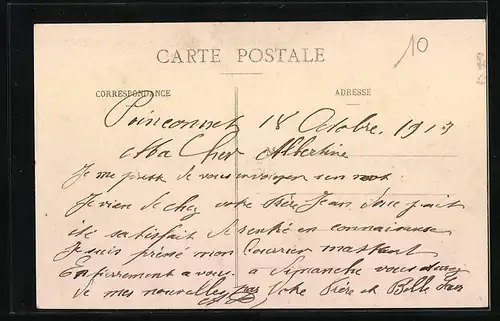 CARTE POSTALE
10
CORRESPONDANCE
ADRESSE
Poinçonnet 18 Octobre 1913
Ma Cher Albertine
Je me presse de vous envoyer un mot
Je vien de chez votre frère Jean
été satisfait de rentré en connaissance
Je suis pressé mon Courrier mattent
a vous a Dimanche vous aurez
de mes nouvelles par Votre Frère et Belle Sœur